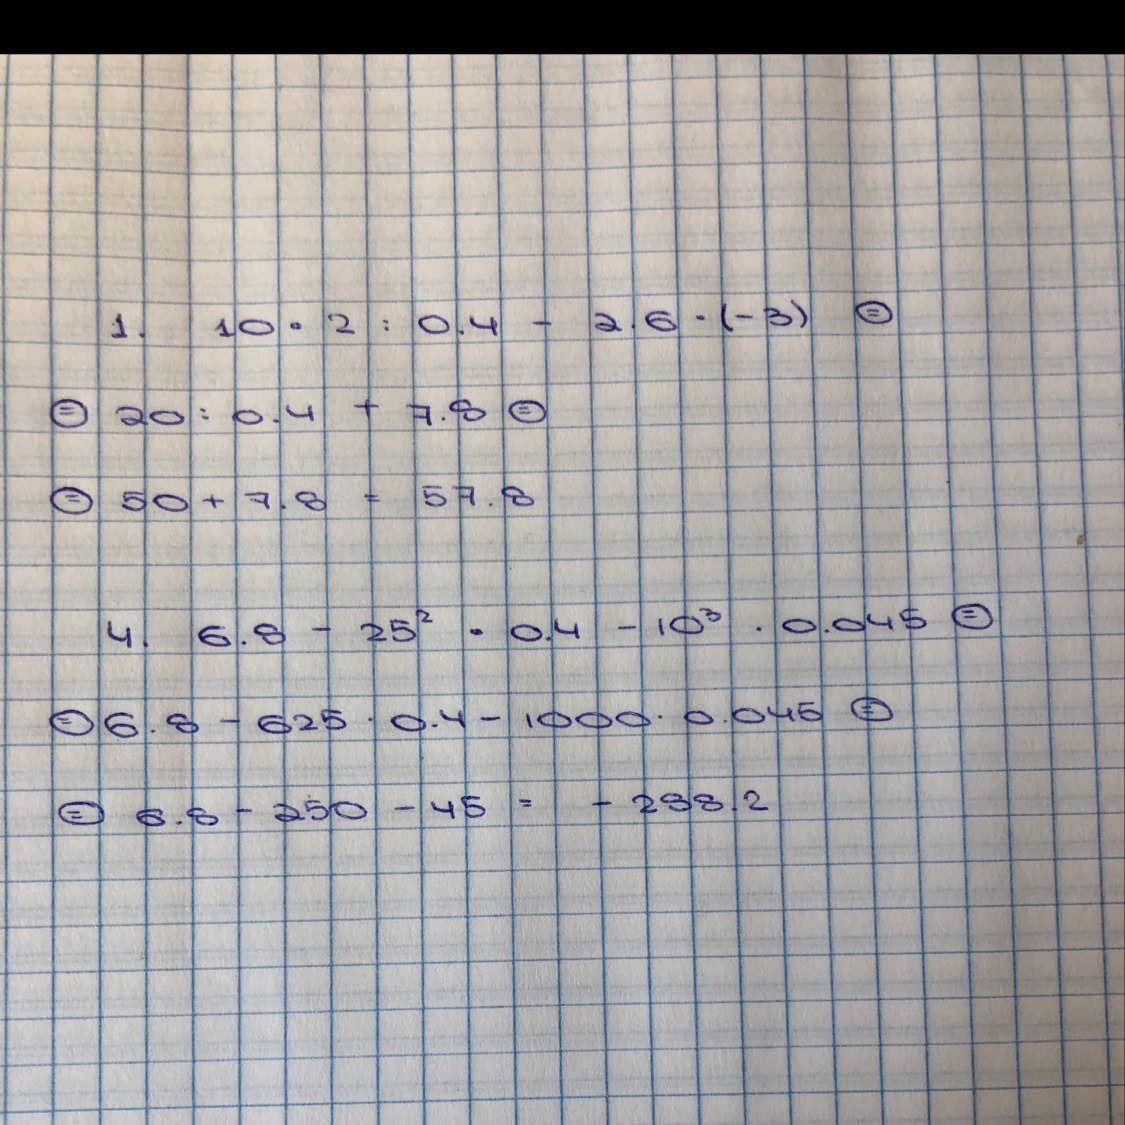 1. 10 · 2 : 0.4 - 2.6 · (-3) ⊜
⊜ 20 : 0.4 + 7.8 ⊜
⊜ 50 + 7.8 = 57.8
4. 6.8 - 25² · 0.4 - 10³ · 0.045 ⊜
⊜ 6.8 - 625 · 0.4 - 1000 · 0.045 ⊜
⊜ 6.8 - 250 - 45 = - 288.2